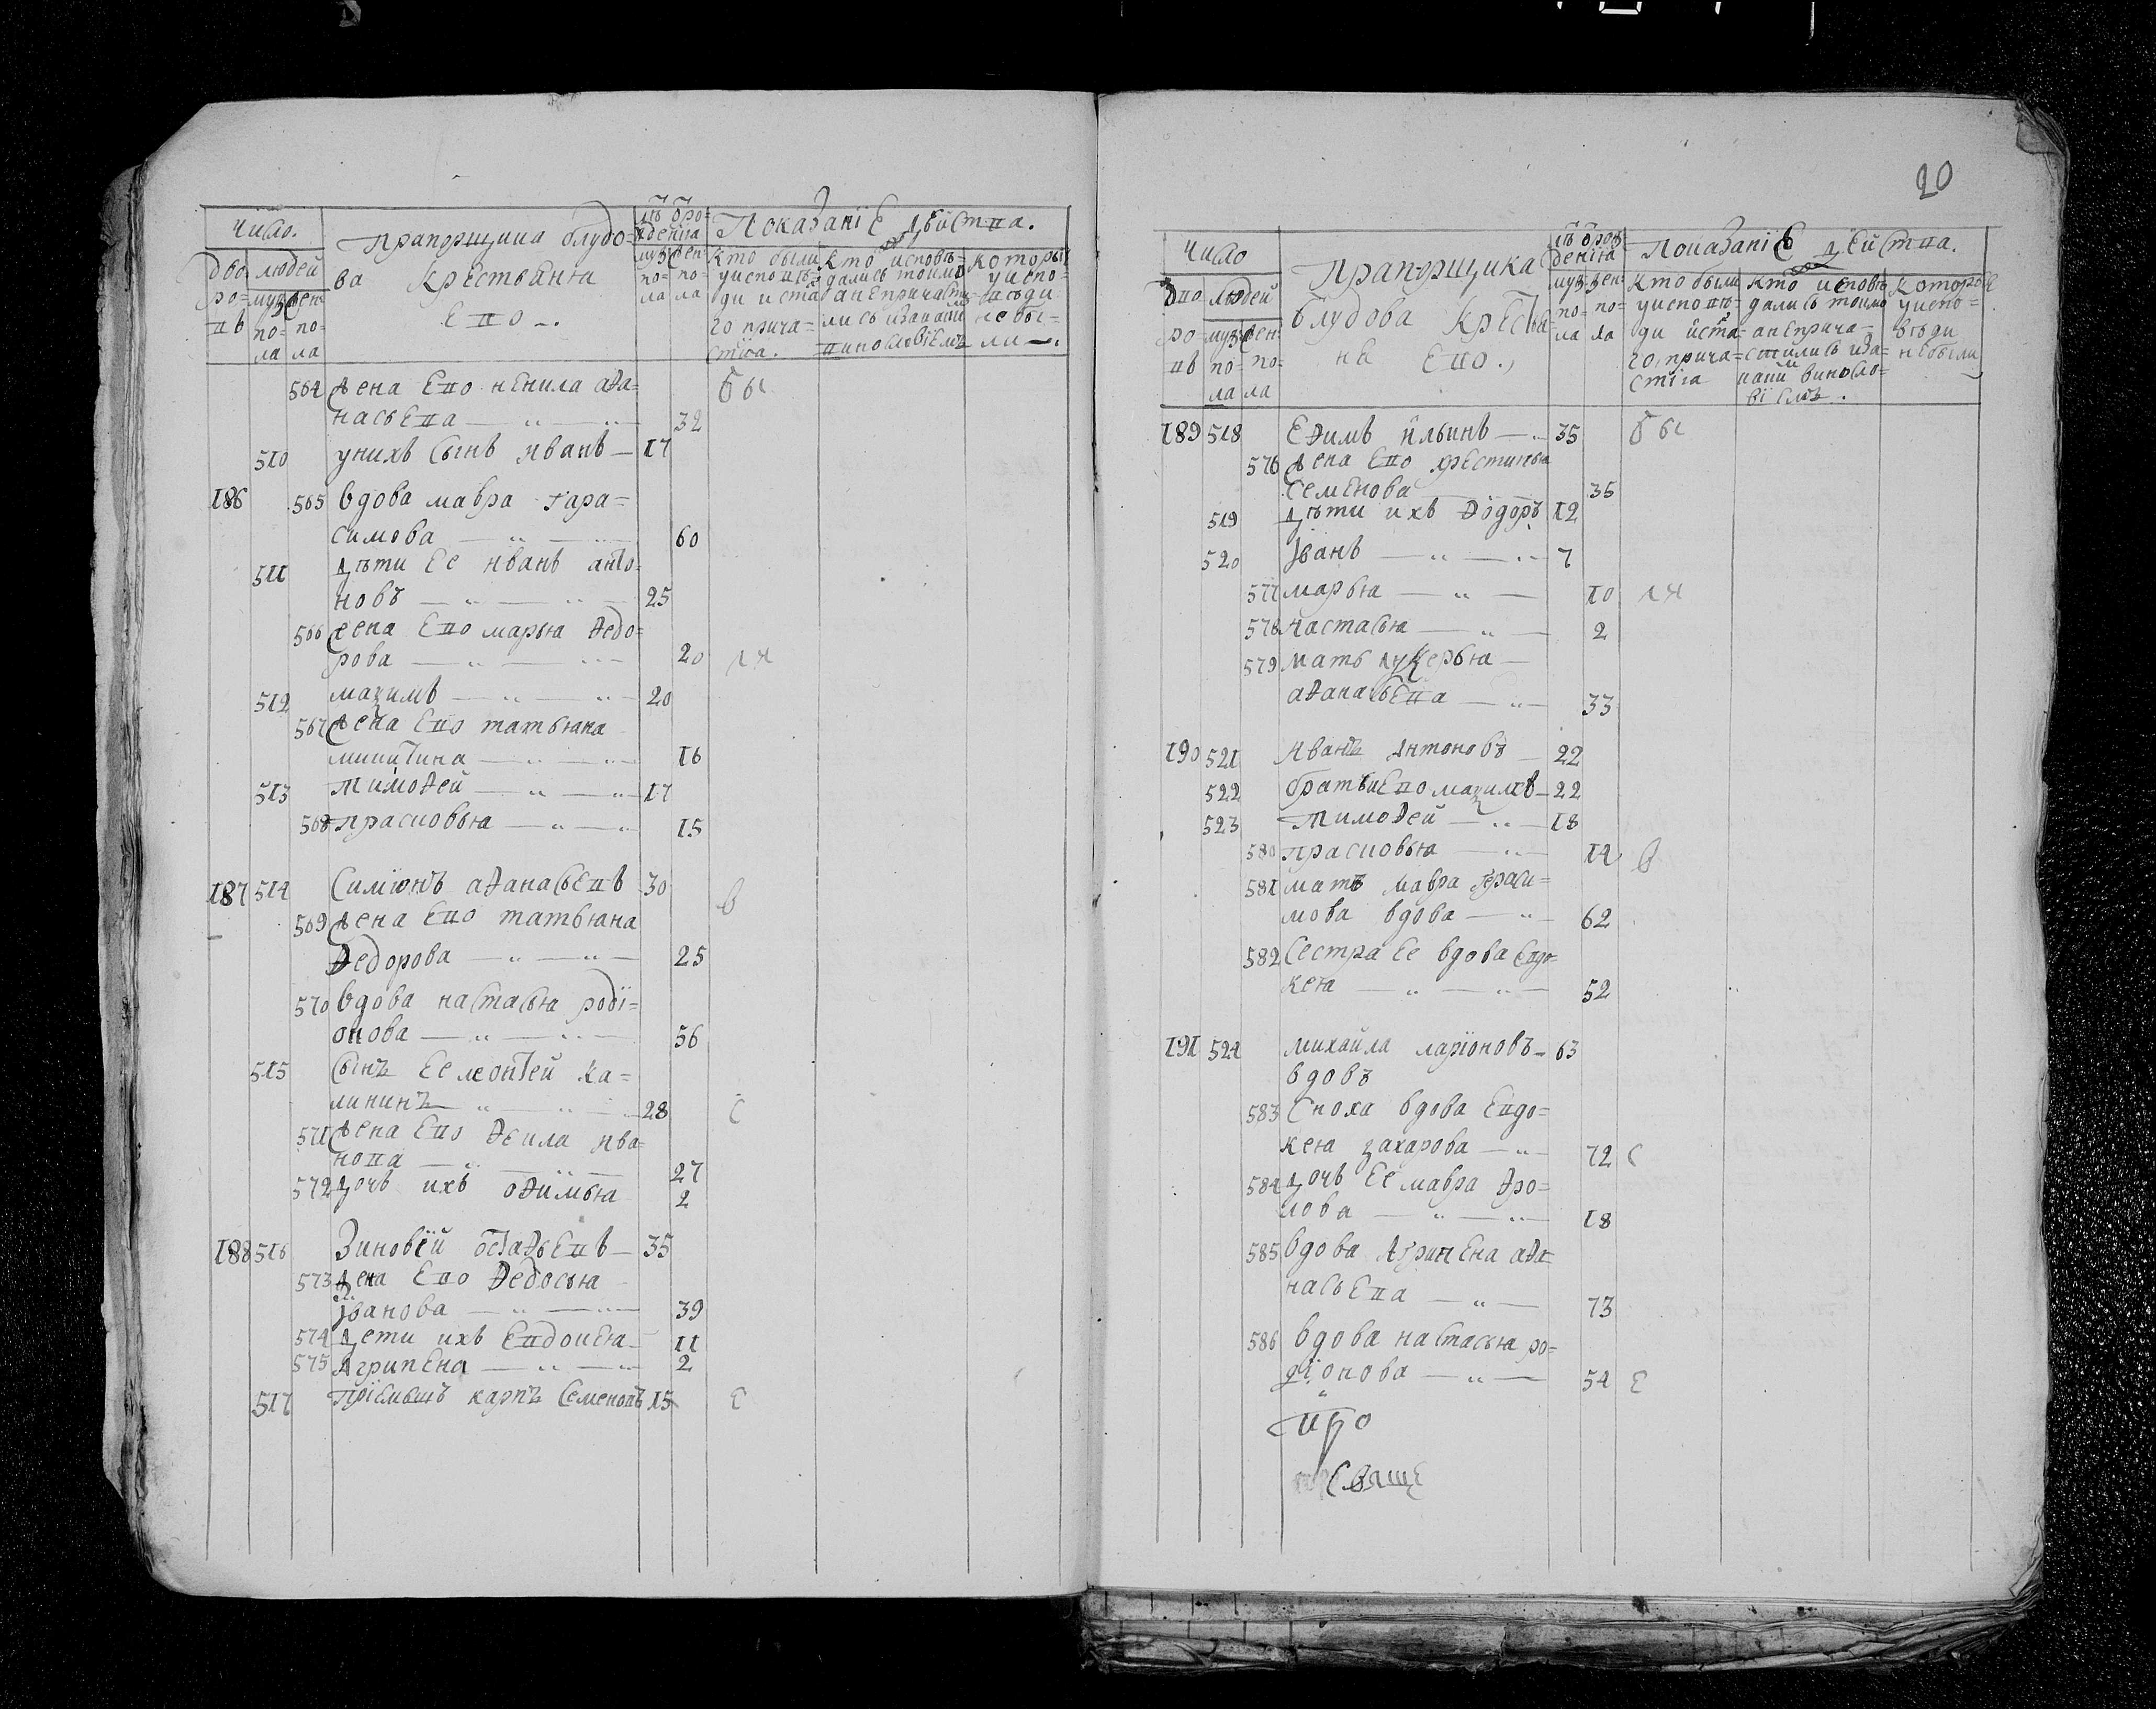 20
Число.
Прапорщика блудо=
ва крестьяня
Ево
Показаніе дѣйства.
дво
ро=
въ
людей
муз
по=
ла
жен
по=
ла
кто были
у исповѣ=
ди и свта
го прича=
стіа.
кто исповѣ=
дались токмо
а не причасти
лись и за каки
винословіемъ
которы
у испо=
вѣди
не бы=
ли
564 жена Ево ненила аѳа=
насьева 32 бы
510 у нихъ сынъ иванъ 17
186 565 вдова мавра гара=
симова 60
511 дѣти Ее иванъ анто=
новъ 25
566 жена Ево марья ѳедо=
рова 20 ли
512 мазимъ 20
567 жена Ево татьяна
микитина 16
513 тимоѳей 17
568 прасковья 15
187 514 Симионъ аѳанасьевъ 30 в
569 жена Ево татьяна
ѳедорова 25
570 вдова настасья роді=
онова 56
515 сынъ Ее леонтей ка=
лининъ 28 с
571 жена Ево ѳекла ива=
нова 27
572 дочь ихъ оѳимья 2
188 516 Зиновей остаѳьевъ 35
573 жена Ево ѳедосья
іванова 39
574 дети ихъ Евдокея 11
575 Агрипена 2
517 пріемышъ карпъ семеновъ 15 е
Число
Прапорщика
блудова крестья=
не Ево.,
Показаніе дѣйства.
дво
ро=
въ
людей
муз
по=
ла
жен
по=
ла
кто были
у исповѣ=
ди и свта
го, прича=
стіа
кто исповѣ
дались токмо
а не прича=
стились и за=
каки винсло=
віемъ.
которые
у испо=
вѣди
небыли
189 518 Еѳимъ ильинъ 35 бы
576 жена Ево хрестинья
семенова 35
519 дѣти ихъ ѳодоръ 12
520 іванъ 7
577 марья 10 ли
578 настасья 2
579 мать лукерья
аѳанасьева 33
190 521 иванъ Антоновъ 22
522 братья Ево мазимъ 22
523 тимоѳей 18
580 прасковья 14 в
581 мать мавра гераси=
мова вдова 62
582 сестра Ее вдова Евдо=
кея 52
191 524 михайла ларіоновъ 63
вдовъ
583 сноха вдова Евдо=
кея захарова 72 с
584 дочь Ее мавра ѳро=
лова 18
585 вдова Агрипена аѳа=
насьева 73
586 вдова настасья ро=
діонова 54 е
свяще